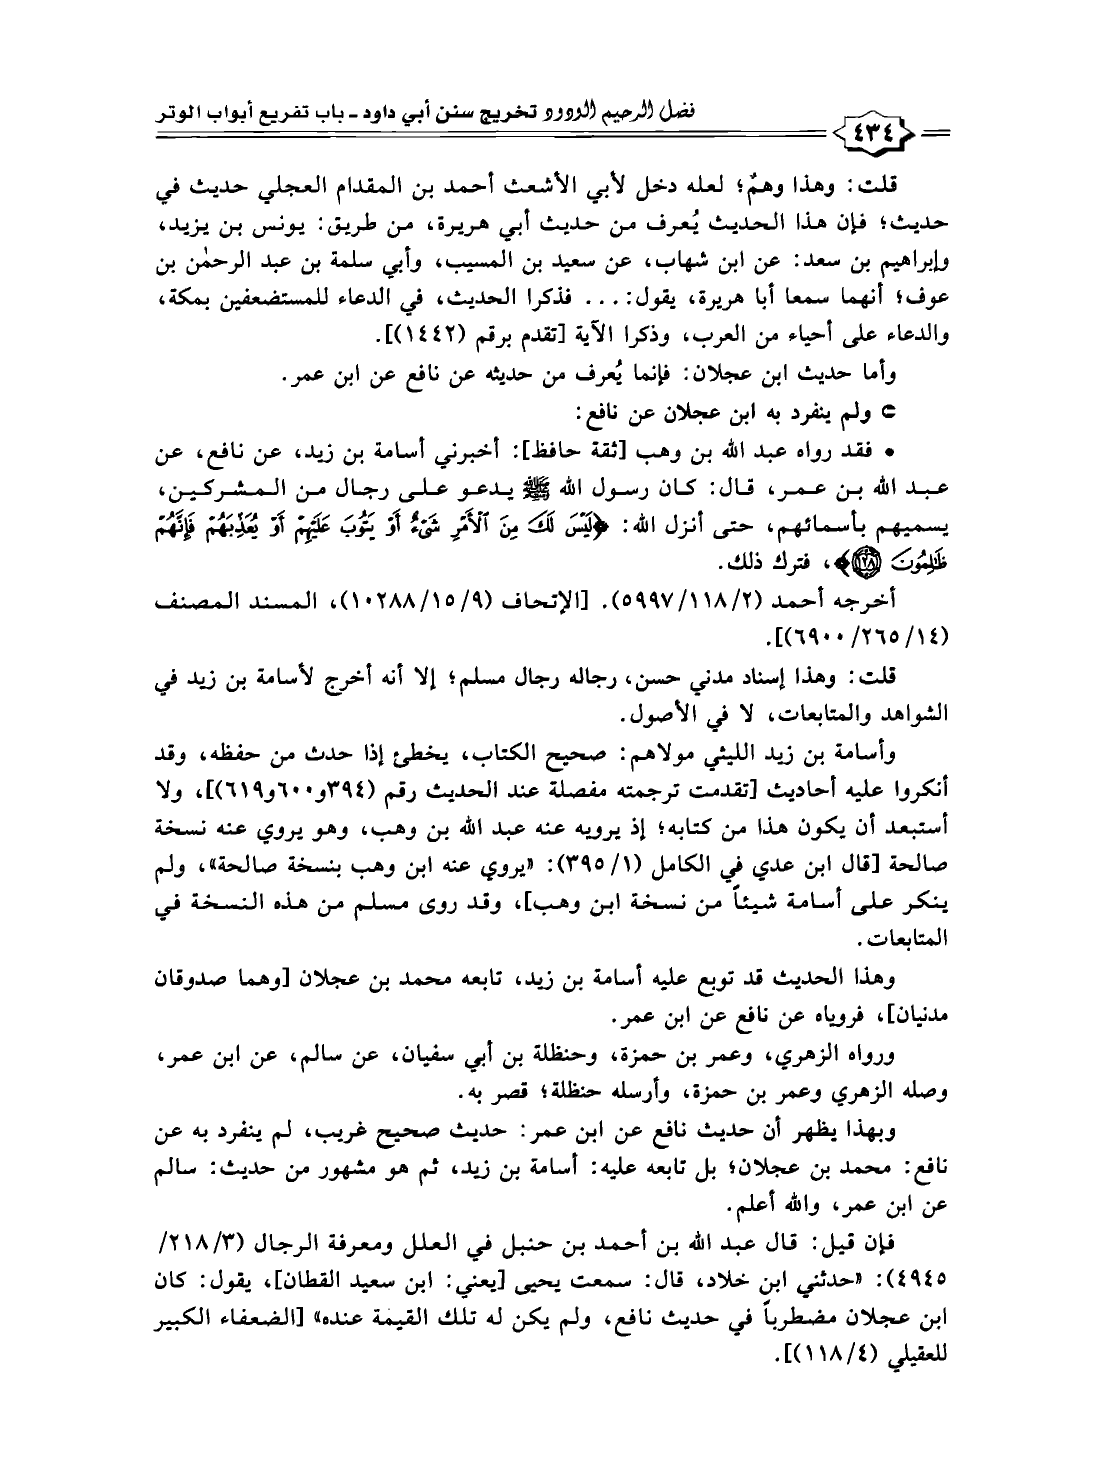 فضل الرحيم الودود تخريج سنن أبي داود ـ باب تفريع أبواب الوتر
٤٣٤
قلت: وهذا وهمٌ؛ لعله دخل لأبي الأشعث أحمد بن المقدام العجلي حديث في
حديث؛ فإن هذا الحديث يُعرف من حديث أبي هريرة، من طريق: يونس بن يزيد،
وإبراهيم بن سعد: عن ابن شهاب، عن سعيد بن المسيب، وأبي سلمة بن عبد الرحمٰن بن
عوف؛ أنهما سمعا أبا هريرة، يقول: ... فذكرا الحديث، في الدعاء للمستضعفين بمكة،
والدعاء على أحياء من العرب، وذكرا الآية [تقدم برقم (١٤٤٢)].
وأما حديث ابن عجلان: فإنما يُعرف من حديثه عن نافع عن ابن عمر.
⊂ ولم ينفرد به ابن عجلان عن نافع:
• فقد رواه عبد الله بن وهب [ثقة حافظ]: أخبرني أسامة بن زيد، عن نافع، عن
عبد الله بن عمر، قال: كان رسول الله ﷺ يدعو على رجال من المشركين،
يسميهم بأسمائهم، حتى أنزل الله: ﴿لَيْسَ لَكَ مِنَ ٱلْأَمْرِ شَىْءٌ أَوْ يَتُوبَ عَلَيْهِمْ أَوْ يُعَذِّبَهُمْ فَإِنَّهُمْ
ظَٰلِمُونَ ١٢٨﴾، فترك ذلك.
أخرجه أحمد (٢/١١٨/٥٩٩٧). [الإتحاف (٩/١٥/١٠٢٨٨)، المسند المصنف
(١٤/٢٦٥/٦٩٠٠)].
قلت: وهذا إسناد مدني حسن، رجاله رجال مسلم؛ إلا أنه أخرج لأسامة بن زيد في
الشواهد والمتابعات، لا في الأصول.
وأسامة بن زيد الليثي مولاهم: صحيح الكتاب، يخطئ إذا حدث من حفظه، وقد
أنكروا عليه أحاديث [تقدمت ترجمته مفصلة عند الحديث رقم (٣٩٤و٦٠٠و٦١٩)]، ولا
أستبعد أن يكون هذا من كتابه؛ إذ يرويه عنه عبد الله بن وهب، وهو يروي عنه نسخة
صالحة [قال ابن عدي في الكامل (١/٣٩٥): «يروي عنه ابن وهب بنسخة صالحة»، ولم
ينكر على أسامة شيئاً من نسخة ابن وهب]، وقد روى مسلم من هذه النسخة في
المتابعات.
وهذا الحديث قد توبع عليه أسامة بن زيد، تابعه محمد بن عجلان [وهما صدوقان
مدنيان]، فروياه عن نافع عن ابن عمر.
ورواه الزهري، وعمر بن حمزة، وحنظلة بن أبي سفيان، عن سالم، عن ابن عمر،
وصله الزهري وعمر بن حمزة، وأرسله حنظلة؛ قصر به.
وبهذا يظهر أن حديث نافع عن ابن عمر: حديث صحيح غريب، لم ينفرد به عن
نافع: محمد بن عجلان؛ بل تابعه عليه: أسامة بن زيد، ثم هو مشهور من حديث: سالم
عن ابن عمر، والله أعلم.
فإن قيل: قال عبد الله بن أحمد بن حنبل في العلل ومعرفة الرجال (٣/٢١٨/
٤٩٤٥): «حدثني ابن خلاد، قال: سمعت يحيى [يعني: ابن سعيد القطان]، يقول: كان
ابن عجلان مضطرباً في حديث نافع، ولم يكن له تلك القيمة عنده» [الضعفاء الكبير
للعقيلي (٤/١١٨)].